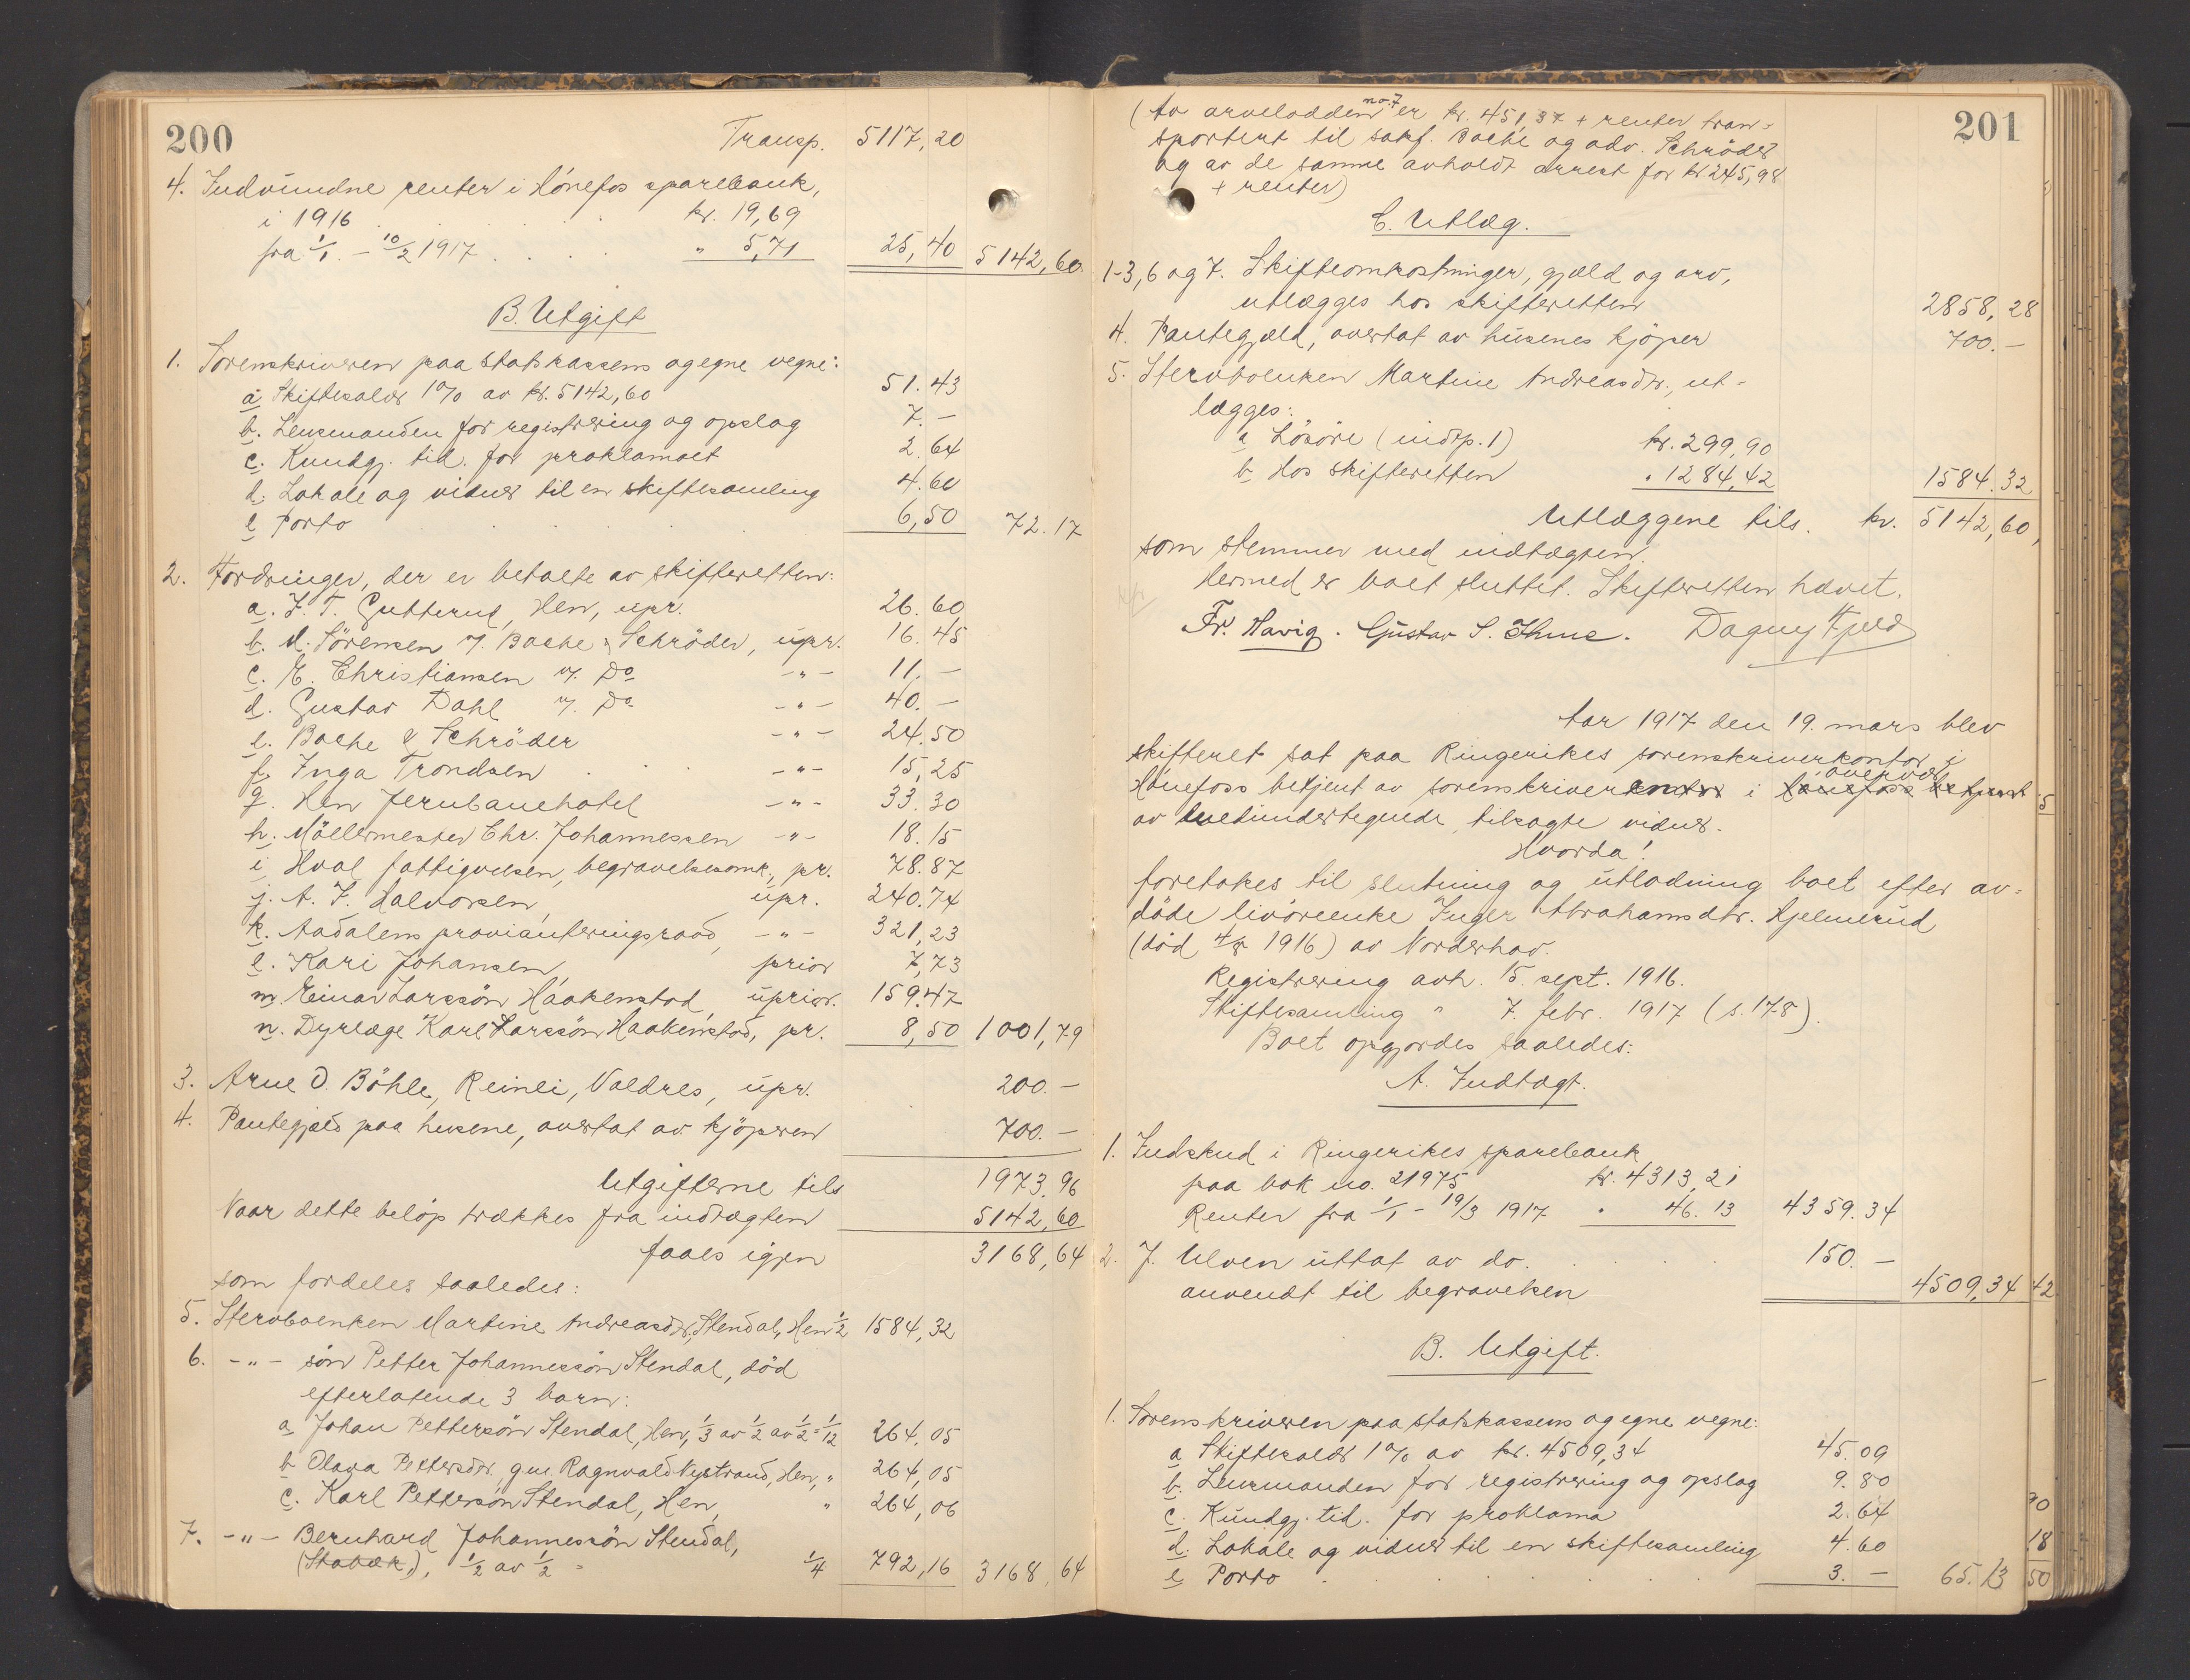 200
Transp. 5117,20
4. Indvundne renter i Hönefos sparebank,
i 1916 . . . . kr. 19,69
fra 1/1 - 10/2 1917 . . . . " 5,71 25,40 5142,60
B. Utgift
1. Sorenskriveren paa statskassens og egne vegne:
a. Skiftesalær 1% av kr. 5142,60 51.43
b. Lensmanden for registrering og opslag 7.-
c. Kundgj. tid. for proklamaet 2.64
d. Lokale og vidner til en skiftesamling 4.60
e Porto . . . . . 6,50 72.17
2. Fordringer, der er betalte av skifteretten:
a. J. T. Gutterud, Hen, upr. 26.60
b. M. Sörensen v. Bache & Schröder, upr. 16.45
c. E. Christiansen v. Do -"- 11.-
d. Gustav Dahl v. Do -"- 40.-
e. Bache & Schröder -"- 24.50
f. Inga Trondsen . . . -"- 15,25
g. Hen Jernbanehotel -"- 33.30
h. Möllermester Chr. Johannessen -"- 18.15
i Hval fattigvæsen, begravelsesomk., pr. 78.87
j. A. J. Halvorsen, upr. 240.74
k. Aadalens provianteringsraad, -"- 321,23
l. Kari Johansen, prior 7,73
m. Einar Larssön Haakenstad, uprior. 159.47
n. Dyrlæge Karl Larssön Haakenstad, pr. 8,50 1001,79
3. Arne O. Böhle, Reinli, Valdres, upr. 200.-
4. Pantegjæld paa husene, overtat av kjöperen 700.-
Utgifterne tils 1973.96
Naar dette belöp trækkes fra indtægten 5142,60
faaes igjen 3168,64
som fordeles saaledes:
5. Stervboenken Martine Andreasdtr. Stendal, Hen 1/2 1584,32
6. -"- sön Petter Johannessön Stendal, död
efterlatende 3 barn:
a Johan Pettersön Stendal, Hen, 1/3 av 1/2 av 1/2 = 1/12 264,05
b Olava Pettersdtr. gm. Ragnvald Nystrand, Hen, " 264,05
c. Karl Pettersön Stendal, Hen, " 264,06
7. -"- Bernhard Johannessön Stendal,
(Stabæk), 1/2 av 1/2 = 1/4 792,16 3168,64
201
(Av arvelodden no. 7 er kr. 451,37 + renter tran-
sportert til sakf. Bache og adv. Schröder
og av de samme avholdt arrest for kr 245,98
+ renter)
C. Utlæg.
1-3, 6 og 7. Skifteomkostninger, gjæld og arv,
utlægges hos skifteretten 2858,28
4. Pantegjæld, overtat av husenes kjöper 700.-
5. Stervboenken Martine Andreasdtr., ut-
lægges:
a Lösöre (indtp. 1) kr. 299,90
b Hos skifteretten " 1284,42 1584.32
Utlæggene tils. kr. 5142,60,
som stemmer med indtægten.
Hermed er boet sluttet. Skifteretten hævet.
Fr. Havig. Gustav S. Ihme. Dagny Fjeld
Aar 1917 den 19. mars blev
skifteret sat paa Ringerikes sorenskriverkontor i
Hönefoss betjent av sorenskriveren i overvær
av medundertegnede tilsagte vidner.
Hvorda!
foretokes til slutning og utlodning boet efter av-
döde livöreenke Inger Abrahamsdtr. Hjelmerud
(död 4/8 1916) av Norderhov.
Registrering avh. 15 sept. 1916.
Skiftesamling " 7. febr. 1917 (s. 178).
Boet opgjordes saaledes:
A. Indtægt.
1. Indskud i Ringerikes sparebank
paa bok no. 21975 kr. 4313,21
Renter fra 1/1 - 19/3 1917 " 46.13 4359.34
2. J. Ulven uttat av do. . . . . 150.-
anvendt til begravelsen 4509,34
B. Utgift.
1. Sorenskriveren paa statskassens og egne vegne:
a Skiftesalær 1% av kr. 4509,34 45.09
b. Lensmanden for registrering og opslag 9.80
c. Kundgj. tid. for proklama 2.64
d. Lokale og vidner til en skiftesamling 4.60
e Porto . . . . . . 3.- 65.13